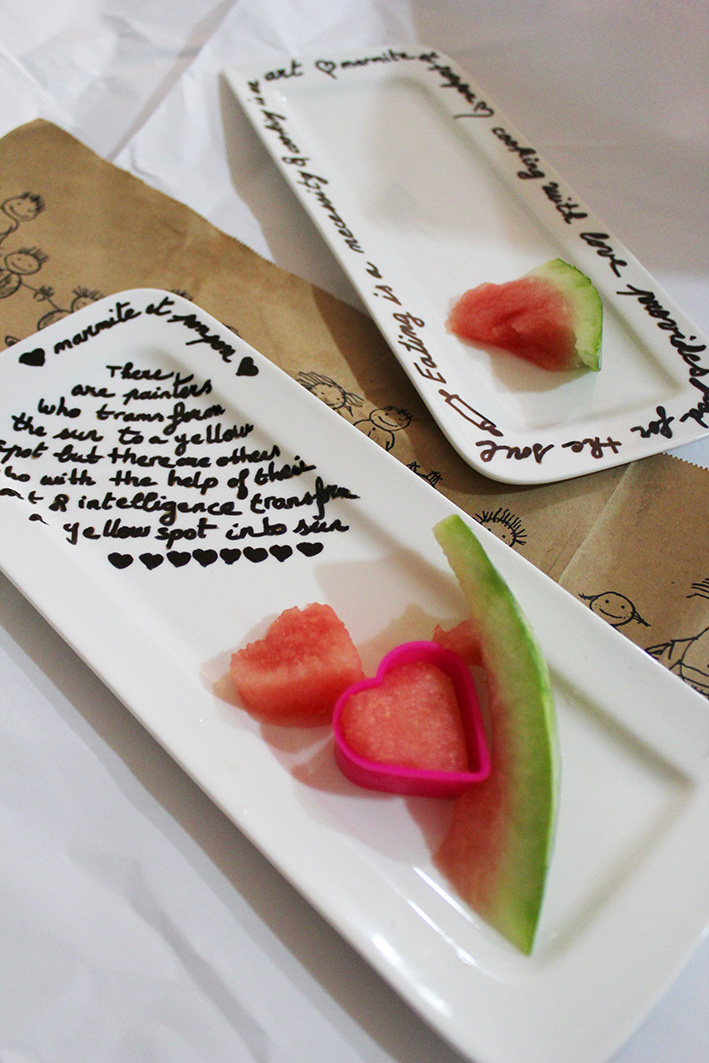 ♥ marmite et ponpon ♥
There
are painters
who transform
the sun to a yellow
spot but there are others
who with the help of their
art & intelligence transform
a yellow spot into sun
♥♥♥♥♥♥♥♥
Eating is a necessity & cooking is an
art ♡ marmite et ponpon ♡
cooking with love provides
food for the soul